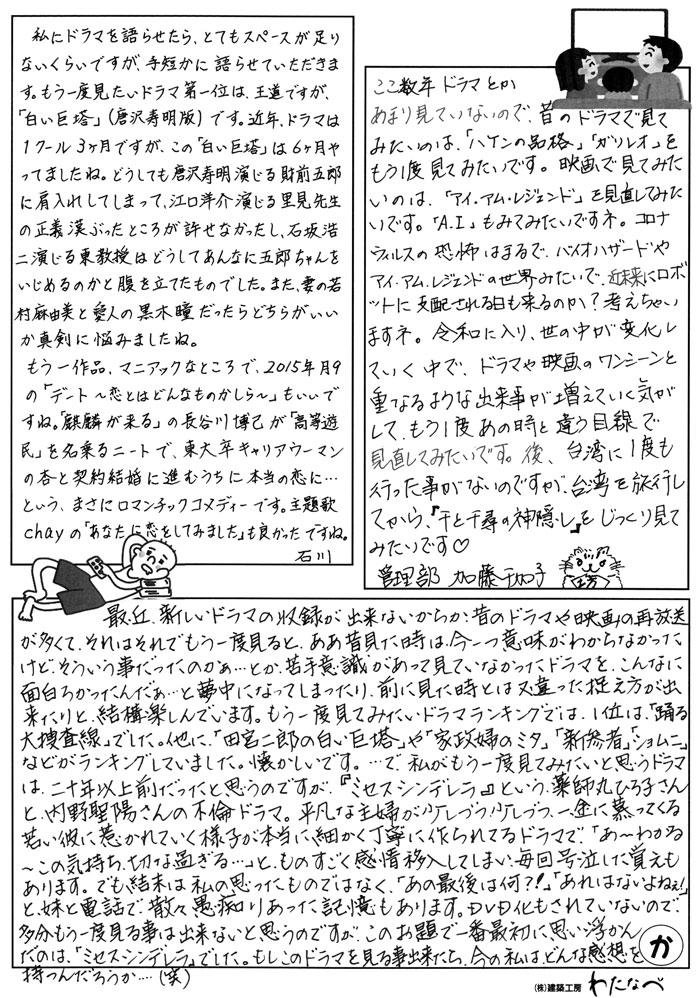 私にドラマを語らせたら、とてもスペースが足り
ないくらいですが、手短かに語らせていただきま
す。もう一度見たいドラマ第一位は、王道ですが、
「白い巨塔」(唐沢寿明版)です。近年、ドラマは
1クール3ヶ月ですが、この「白い巨塔」は6ヶ月や
ってましたね。どうしても唐沢寿明演じる財前五郎
に肩入れしてしまって、江口洋介演じる里見先生
の正義漢ぶったところが許せなかったし、石坂浩
二演じる東教授はどうしてあんなに五郎ちゃんを
いじめるのかと腹を立てたものでした。また、妻の若
村麻由美と愛人の黒木瞳だったらどちらがいい
か真剣に悩みましたね。
もう一作品、マニアックなところで、2015年月9
の「デート～恋とはどんなものかしら～」もいいで
すね。「麒麟が来る」の長谷川博己が「高等遊
民」を名乗るニートで、東大卒キャリアウーマン
の杏と契約結婚に進むうちに本当の恋に…
という、まさにロマンチックコメディーです。主題歌
chayの「あなたに恋をしてみました」も良かったですね。
石川
ここ数年ドラマとか
あまり見ていないので、昔のドラマで見て
みたいのは、「ハケンの品格」「ガリレオ」を
もう1度見てみたいです。映画で見てみた
いのは、「アイ・アム・レジェンド」を見直してみた
いです。「A.I」もみてみたいですネ。コロナ
ウィルスの恐怖はまるで、バイオハザードや
アイ・アム・レジェンドの世界みたいで、近未来にロボ
ットに支配される日も来るのか?考えちゃい
ますネ。令和に入り、世の中が変化し
ていく中で、ドラマや映画のワンシーンと
重なるような出来事が増えていく気が
して、もう1度あの時と違う目線で
見直してみたいです。後、台湾に1度も
行った事がないのですが、台湾を旅行し
てから、『千と千尋の神隠し』をじっくり見て
みたいです♡
管理部 加藤千加子
最近、新しいドラマの収録が出来ないからか、昔のドラマや映画の再放送
が多くて、それはそれでもう一度見ると、ああ昔見た時は、今一つ意味がわからなかった
けど、そういう事だったのかぁ…とか、苦手意識があって見ていなかったドラマを、こんなに
面白ろかったんだぁ…と夢中になってしまったり、前に見た時とは又違った捉え方が出
来たりと、結構楽しんでいます。もう一度見てみたいドラマランキングでは、1位は、「踊る
大捜査線」でした。他に、「田宮二郎の白い巨塔」や「家政婦のミタ」「新参者」「ショムニ」
などがランキングしていました。懐かしいです。…で、私がもう一度見てみたいと思うドラマ
は、二十年以上前だったと思うのですが、『ミセスシンデレラ』という、薬師丸ひろ子さん
と、内野聖陽さんの不倫ドラマ。平凡な主婦が少しづつ少しづつ、一途に慕ってくる
若い彼に惹かれていく様子が本当に細かく丁寧に作られてるドラマで、「あ～わかる
～この気持ち、切な過ぎる…」と、ものすごく感情移入してしまい、毎回号泣してた覚えも
あります。でも結末は私の思ったものではなく、「あの最後は何?!」「あれはないよねぇ!」
と、妹と電話で散々愚痴りあった記憶もあります。DVD化もされていないので、
多分もう一度見る事は出来ないと思うのですが、このお題で一番最初に思い浮かん
だのは、「ミセスシンデレラ」でした。もしこのドラマを見る事出来たら、今の私は、どんな感想を
持つんだろうか….(笑)
か
(株)建築工房 わたなべ